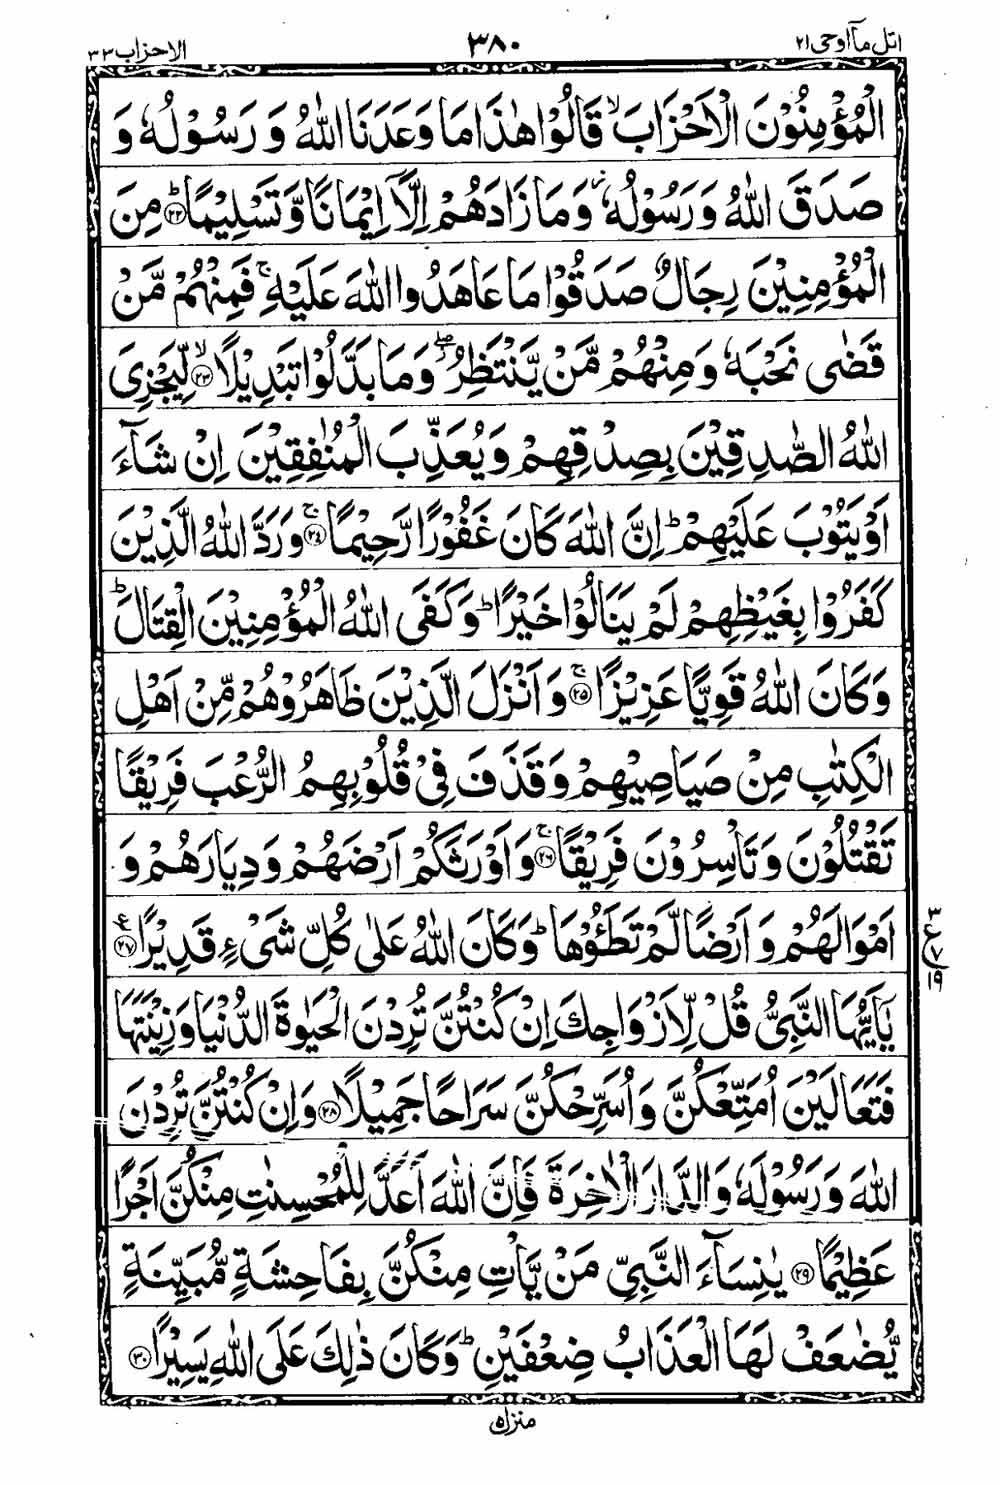 اتل مآ اوحی ۲۱
۳۸۰
الاحزاب ۳۳
الْمُؤْمِنُوْنَ الْاَحْزَابَ ۙ قَالُوْا هٰذَا مَا وَعَدَنَا اللّٰهُ وَ رَسُوْلُهٗ وَ
صَدَقَ اللّٰهُ وَ رَسُوْلُهٗ ؗ وَ مَا زَادَهُمْ اِلَّاۤ اِیْمَانًا وَّ تَسْلِیْمًا ؕ۝۲۲ مِنَ
الْمُؤْمِنِیْنَ رِجَالٌ صَدَقُوْا مَا عَاهَدُوا اللّٰهَ عَلَیْهِ ۚ فَمِنْهُمْ مَّنْ
قَضٰی نَحْبَهٗ وَ مِنْهُمْ مَّنْ یَّنْتَظِرُ ۖؗ وَ مَا بَدَّلُوْا تَبْدِیْلًا ۙ۝۲۳ لِّیَجْزِیَ
اللّٰهُ الصّٰدِقِیْنَ بِصِدْقِهِمْ وَ یُعَذِّبَ الْمُنٰفِقِیْنَ اِنْ شَآءَ
اَوْ یَتُوْبَ عَلَیْهِمْ ؕ اِنَّ اللّٰهَ كَانَ غَفُوْرًا رَّحِیْمًا ۚ۝۲۴ وَ رَدَّ اللّٰهُ الَّذِیْنَ
كَفَرُوْا بِغَیْظِهِمْ لَمْ یَنَالُوْا خَیْرًا ؕ وَ كَفَی اللّٰهُ الْمُؤْمِنِیْنَ الْقِتَالَ ؕ
وَ كَانَ اللّٰهُ قَوِیًّا عَزِیْزًا ۚ۝۲۵ وَ اَنْزَلَ الَّذِیْنَ ظَاهَرُوْهُمْ مِّنْ اَهْلِ
الْكِتٰبِ مِنْ صَیَاصِیْهِمْ وَ قَذَفَ فِیْ قُلُوْبِهِمُ الرُّعْبَ فَرِیْقًا
تَقْتُلُوْنَ وَ تَاْسِرُوْنَ فَرِیْقًا ۚ۝۲۶ وَ اَوْرَثَكُمْ اَرْضَهُمْ وَ دِیَارَهُمْ وَ
اَمْوَالَهُمْ وَ اَرْضًا لَّمْ تَطَـُٔوْهَا ؕ وَ كَانَ اللّٰهُ عَلٰی كُلِّ شَیْءٍ قَدِیْرًا ۝۲۷ ع
۳
ع
۷
۱۹
یٰۤاَیُّهَا النَّبِیُّ قُلْ لِّاَزْوَاجِكَ اِنْ كُنْتُنَّ تُرِدْنَ الْحَیٰوةَ الدُّنْیَا وَ زِیْنَتَهَا
فَتَعَالَیْنَ اُمَتِّعْكُنَّ وَ اُسَرِّحْكُنَّ سَرَاحًا جَمِیْلًا ۝۲۸ وَ اِنْ كُنْتُنَّ تُرِدْنَ
اللّٰهَ وَ رَسُوْلَهٗ وَ الدَّارَ الْاٰخِرَةَ فَاِنَّ اللّٰهَ اَعَدَّ لِلْمُحْسِنٰتِ مِنْكُنَّ اَجْرًا
عَظِیْمًا ۝۲۹ یٰنِسَآءَ النَّبِیِّ مَنْ یَّاْتِ مِنْكُنَّ بِفَاحِشَةٍ مُّبَیِّنَةٍ
یُّضٰعَفْ لَهَا الْعَذَابُ ضِعْفَیْنِ ؕ وَ كَانَ ذٰلِكَ عَلَی اللّٰهِ یَسِیْرًا ۝۳۰
منزل ۵